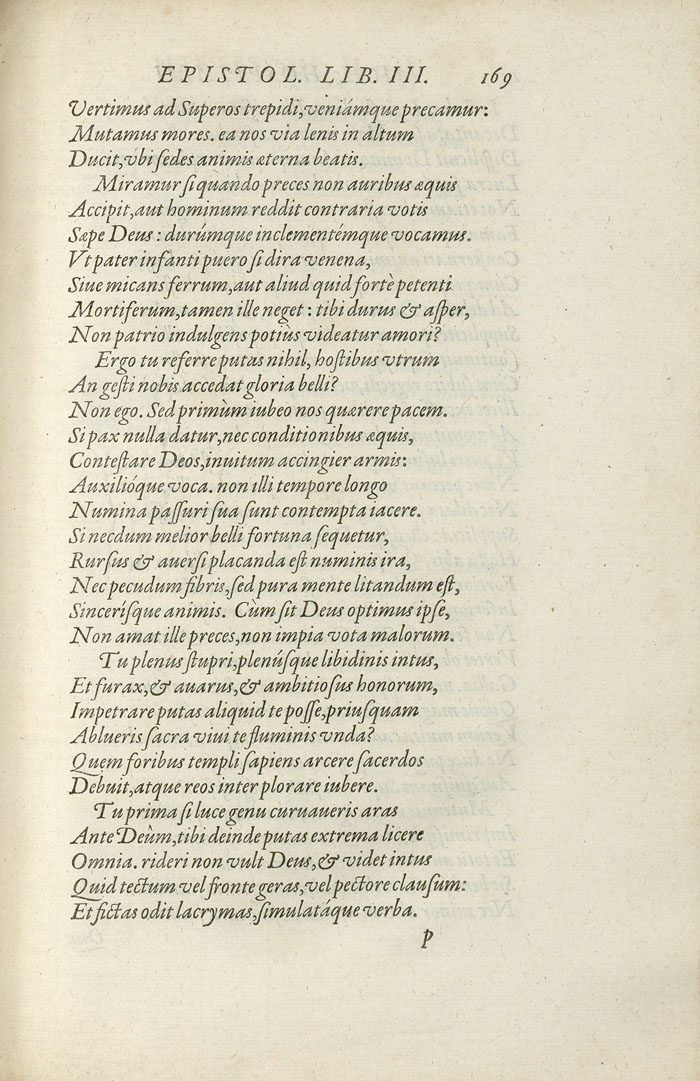 EPISTOL. LIB. III. 169
Vertimus ad Superos trepidi, veniámque precamur:
Mutamus mores. ea nos via lenis in altum
Ducit, vbi ſedes animis æterna beatis.
Miramur ſi quando preces non auribus æquis
Accipit, aut hominum reddit contraria votis
Sæpe Deus: durúmque inclementémque vocamus.
Vt pater infanti puero ſi dira venena,
Siue micans ferrum, aut aliud quid fortè petenti
Mortiferum, tamen ille neget: tibi durus & aſper,
Non patrio indulgens potiùs videatur amori?
Ergo tu referre putas nihil, hoſtibus vtrum
An geſti nobis accedat gloria belli?
Non ego. Sed primùm iubeo nos quærere pacem.
Si pax nulla datur, nec conditionibus æquis,
Conteſtare Deos, inuitum accingier armis:
Auxilióque voca. non illi tempore longo
Numina paſſuri ſua ſunt contempta iacere.
Si necdum melior belli fortuna ſequetur,
Rurſus & auerſi placanda eſt numinis ira,
Nec pecudum fibris, ſed pura mente litandum eſt,
Sinceríſque animis. Cùm ſit Deus optimus ipſe,
Non amat ille preces, non impia vota malorum.
Tu plenus ſtupri, plenúſque libidinis intus,
Et furax, & auarus, & ambitioſus honorum,
Impetrare putas aliquid te poſſe, priuſquam
Ablueris ſacra viui te fluminis vnda?
Quem foribus templi ſapiens arcere ſacerdos
Debuit, atque reos inter plorare iubere.
Tu prima ſi luce genu curuaueris aras
Ante Deûm, tibi deinde putas extrema licere
Omnia. rideri non vult Deus, & videt intus
Quid tectum vel fronte geras, vel pectore clauſum:
Et fictas odit lacrymas, ſimulatáque verba.
p